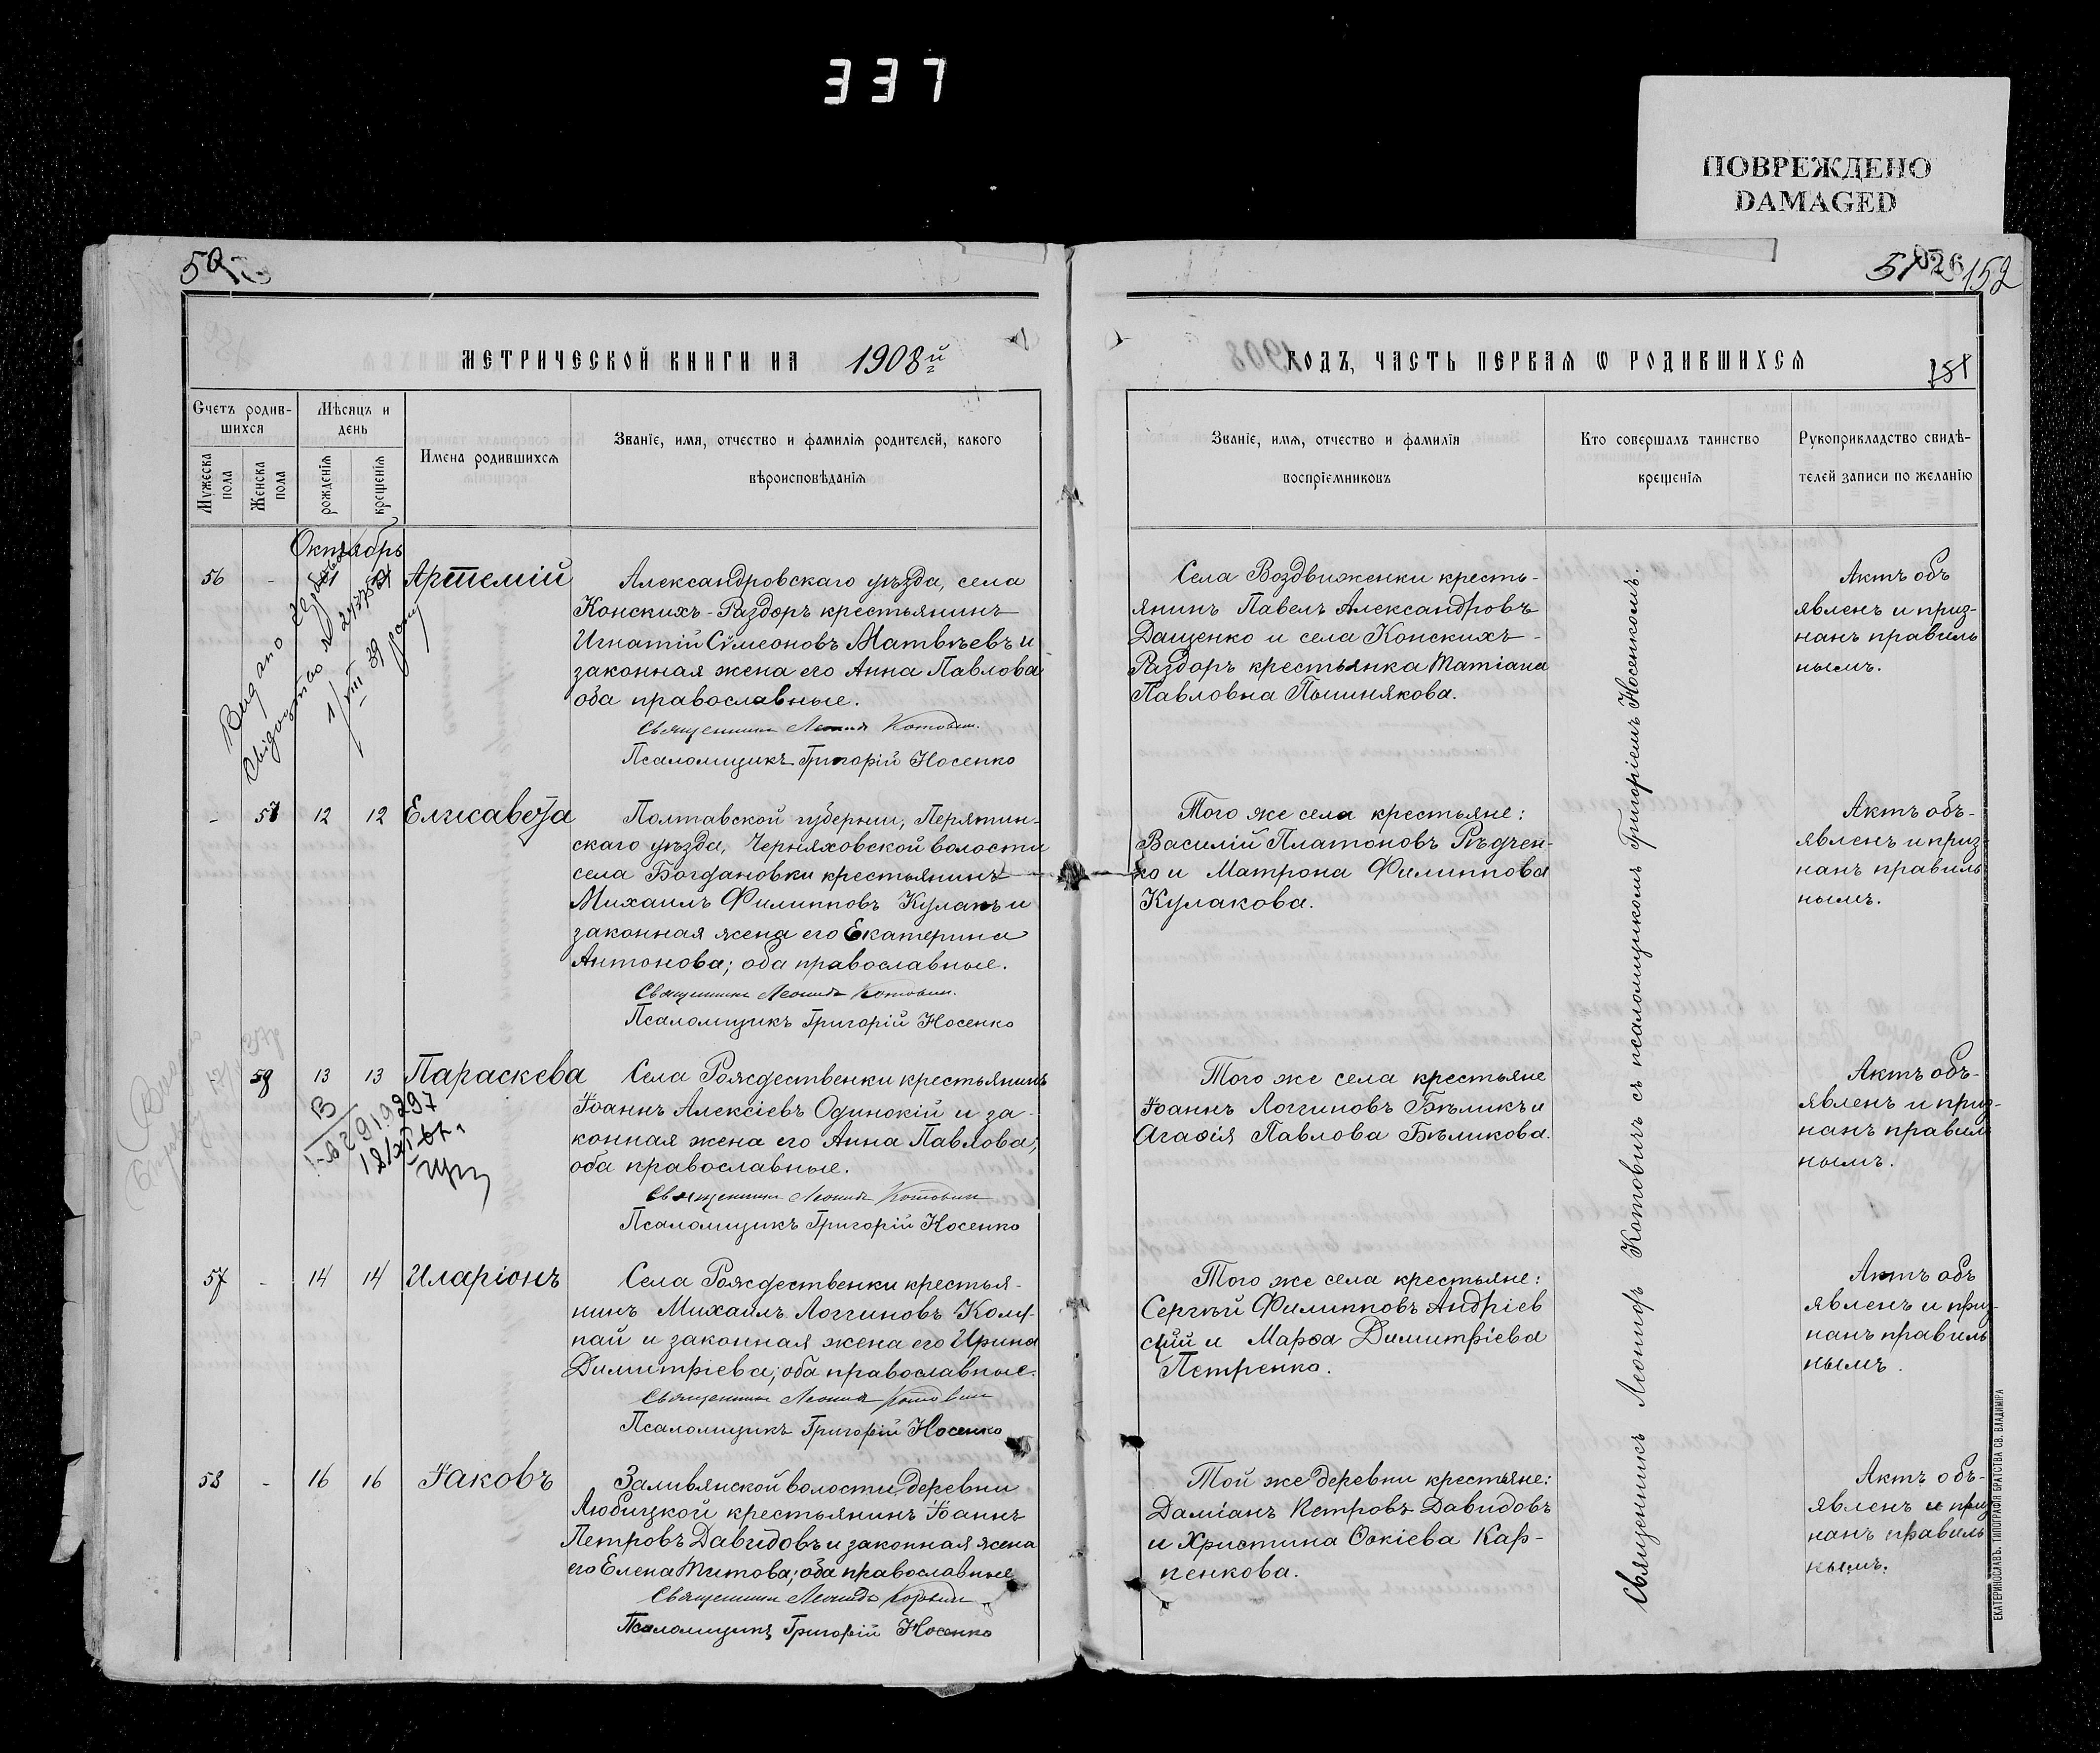 337
ПОВРЕЖДЕНО
DAMAGED
152
МЕТРИЧЕСКОЙ КНИГИ НА 1908й
ГОДЪ, ЧАСТЬ ПЕРВАЯ Ѡ РОДИВШИХСЯ
151
Счетъ родив-
шихся
Мужеска
пола
Женска
пола
Мѣсяцъ и
день
рожденія
крещенія
Имена родившихся
Званіе, имя, отчество и фамилія родителей, какого
вѣроисповѣданія
Званіе, имя, отчество и фамилія
воспріемниковъ
Кто совершалъ таинство
крещенія
Рукоприкладство свидѣ-
телей записи по желанію
Октябрь
56 -
Артемій
Александровскаго уѣзда, села
Конскихъ-Раздоръ крестьянинъ
Игнатій Сѵмеоновъ Матвѣевъ и
законная жена его Анна Павлова
оба православные.
Священникъ Леонидъ Котович.
Псаломщикъ Григорій Носенко
Села Воздвиженки кресть-
янинъ Павелъ Александровъ
Дащенко и села Конскихъ-
Раздоръ крестьянка Татіана
Павловна
Актъ объ
явленъ и приз-
нанъ правиль
нымъ.
Видано
1/VIII 39
- 57 12 12 Елисавета
Полтавской губерніи, Перятин-
скаго уѣзда, Черняховской волости
села Богдановки крестьянинъ
Михаилъ Филипповъ Кулакъ и
законная жена его Екатерина
Антонова; оба православные.
Священникъ Леонидъ Котович.
Псаломщикъ Григорій Носенко
Того же села крестьяне:
Василій Платоновъ Рѣдчен-
ко и Матрона Филиппова
Кулакова.
Актъ объ-
явленъ и приз-
нанъ правиль
нымъ.
58 13 13 Параскева
Села Рождественки крестьянинъ
Іоаннъ Алексіевъ Одинокій и за-
конная жена его Анна Павлова;
оба православные.
Священникъ Леонидъ Котович
Псаломщикъ Григорій Носенко
Того же села крестьяне
Іоаннъ Логгиновъ Бѣликъ и
Агаѳія Павлова Бѣликова.
Актъ объ-
явленъ и приз-
нанъ правиль
нымъ.
57 - 14 14 Иларіонъ
Села Рождественки крестья-
нинъ Михаилъ Логгиновъ Колу-
пай и законная жена его Ирина
Димитріева; оба православные.
Священникъ Леонидъ Котович
Псаломщикъ Григорій Носенко
Того же села крестьяне:
Сергѣй Филипповъ Андріев
скій и Марѳа Димитріева
Петренко.
Актъ объ
явленъ и приз-
нанъ правиль
нымъ.
58 - 16 16 Іаковъ
Заливянской волости деревни
Любицкой крестьянинъ Іоаннъ
Петровъ Давидовъ и законная жена
его Елена Титова; оба православные
Священникъ Леонидъ Котович
Псаломщикъ Григорій Носенко
Той же деревни крестьяне:
Даміанъ Петровъ Давидовъ
и Христина Ѳокіева Кар-
пенкова.
Актъ объ-
явленъ и приз
нанъ правиль
нымъ.
Священникъ Леонидъ Котовичъ съ псаломщикомъ Григоріемъ Носенкомъ.
ЕКАТЕРИНОСЛАВЪ. ТИПОГРАФІЯ БРАТСТВА СВ. ВЛАДИМІРА